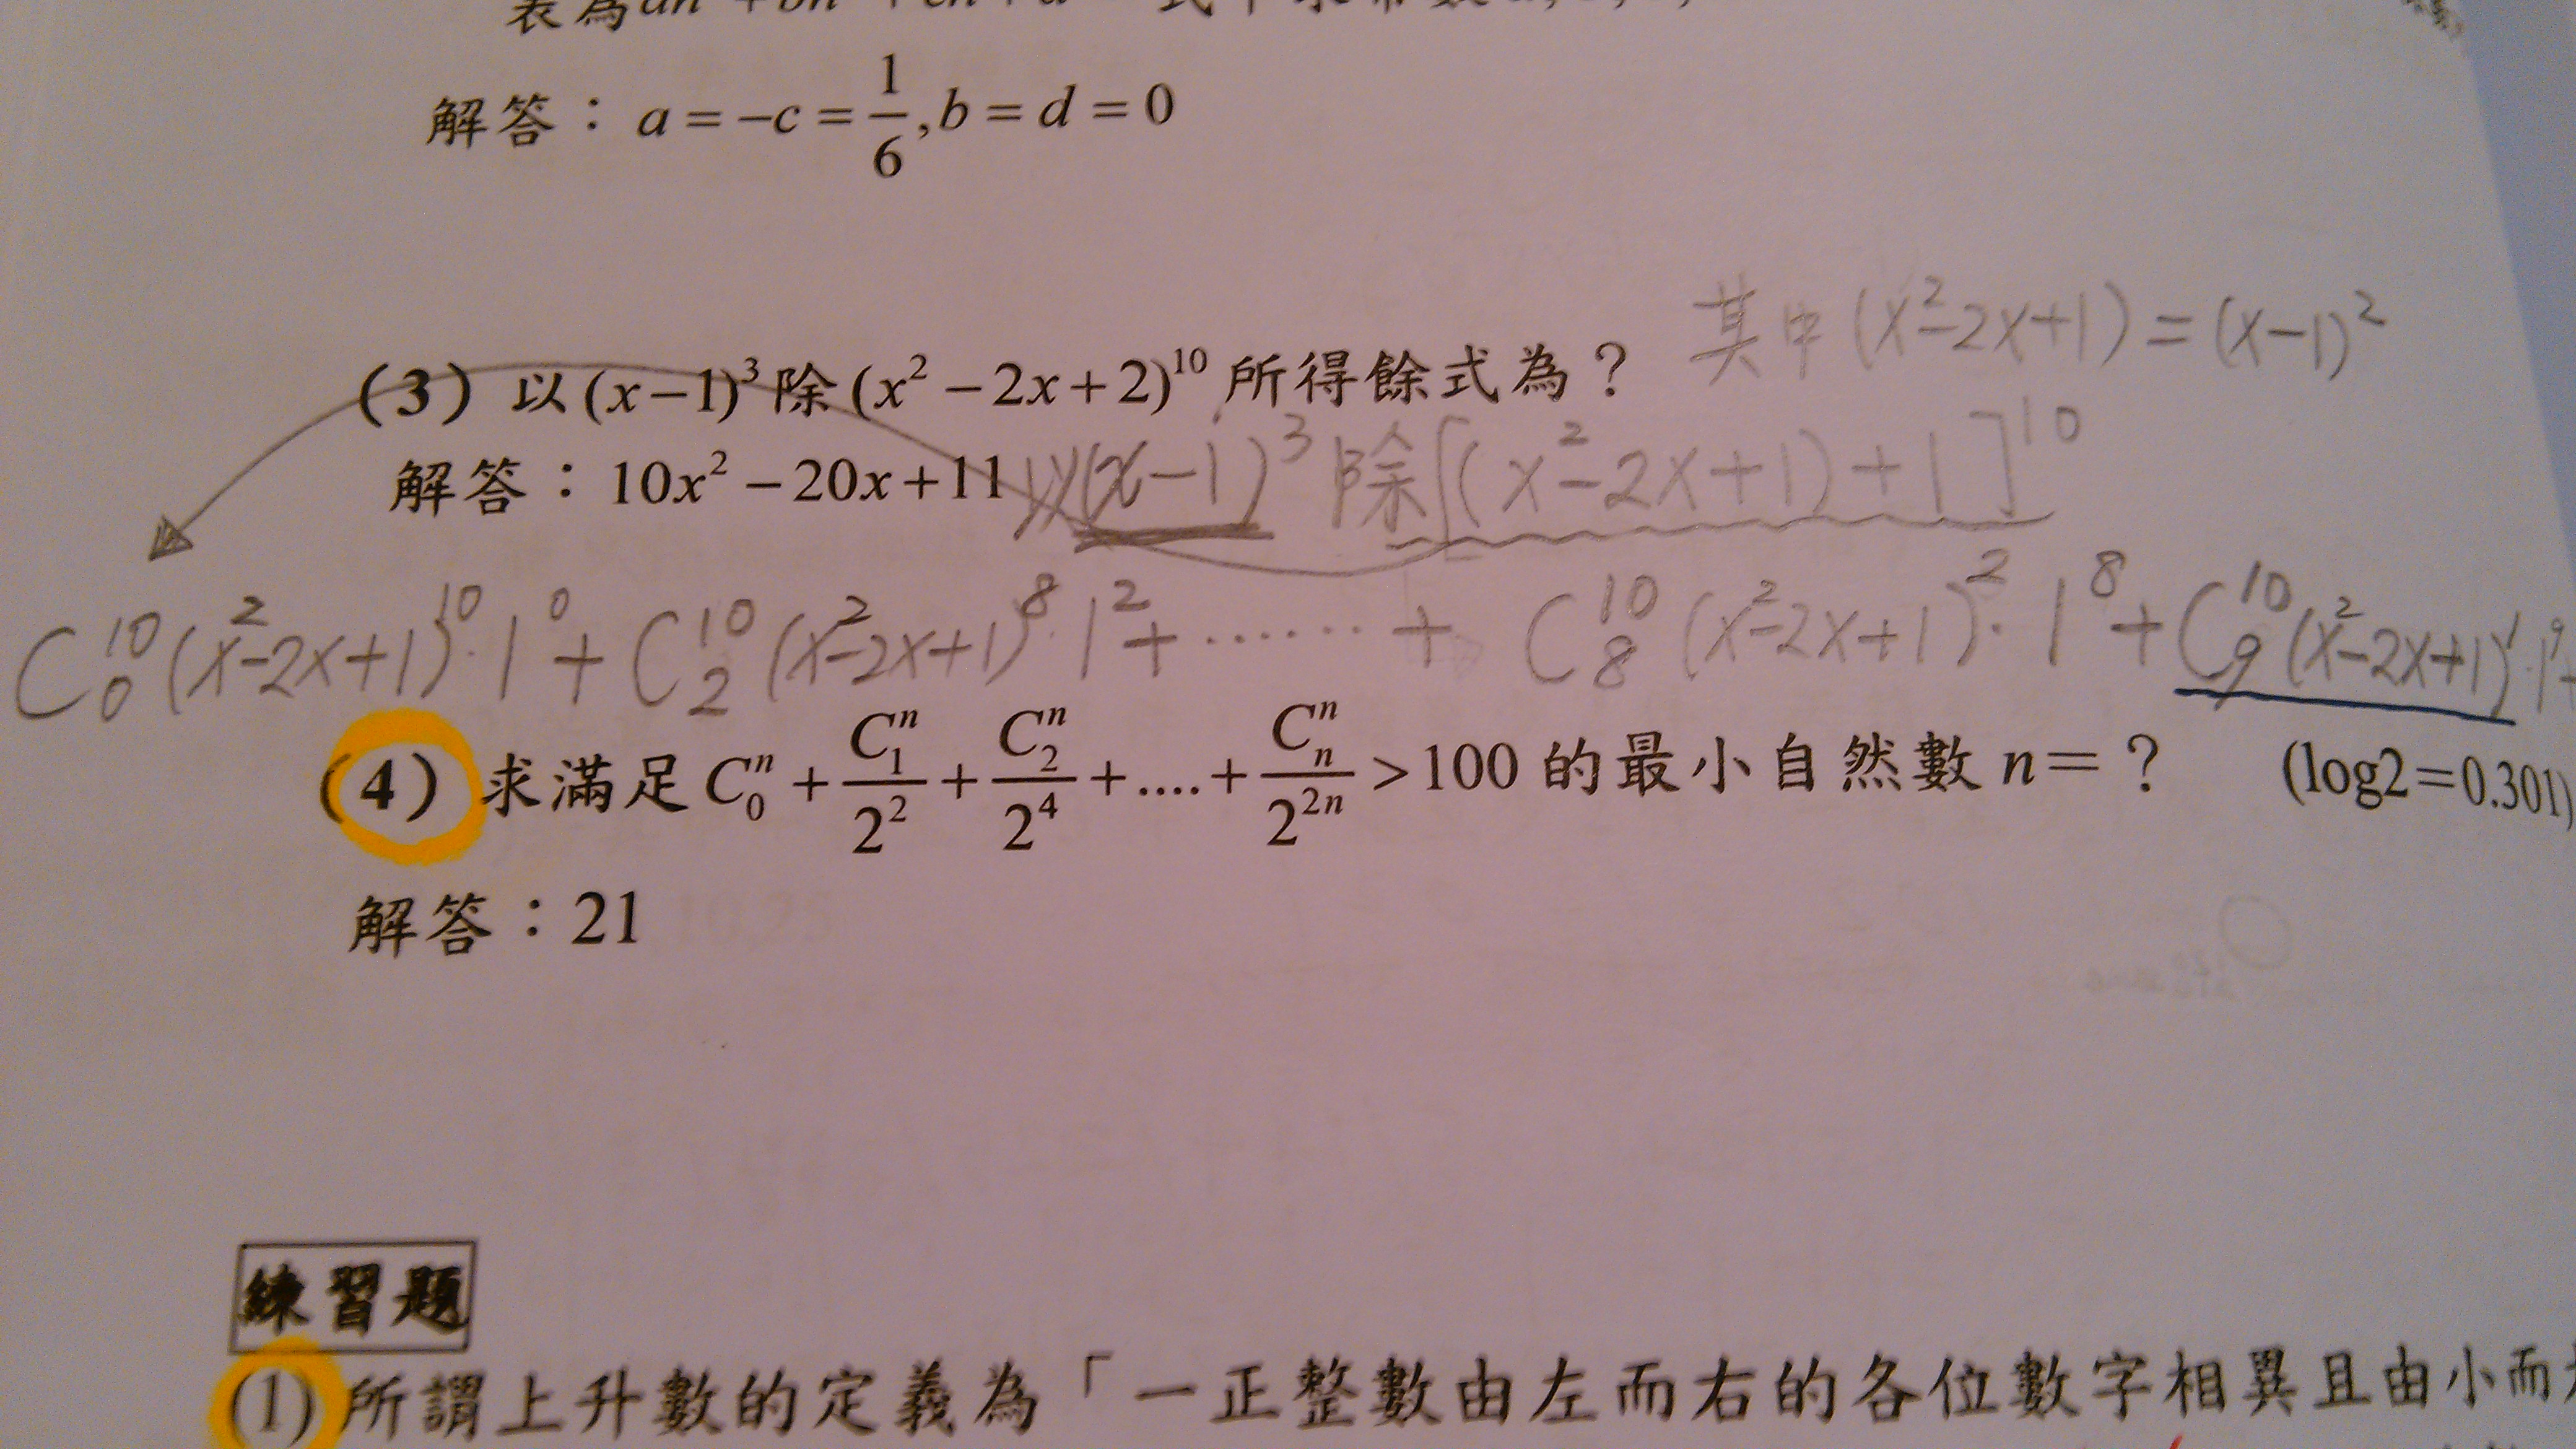 解答：a=−c=1/6,b=d=0
其中(x²−2x+1)=(x−1)²
(3) 以(x−1)³除(x²−2x+2)¹⁰所得餘式為？
解答：10x²−20x+11 以(x−1)³ 除[(x²−2x+1)+1]¹⁰
C₀¹⁰(x²−2x+1)¹⁰·1⁰+C₂¹⁰(x²−2x+1)⁸·1²+……+C₈¹⁰(x²−2x+1)²·1⁸+C₉¹⁰(x²−2x+1)¹·1⁹+
(4) 求滿足C₀ⁿ+C₁ⁿ/2²+C₂ⁿ/2⁴+....+Cₙⁿ/2²ⁿ>100的最小自然數n=？ (log2=0.301)
解答：21
練習題
(1)所謂上升數的定義為「一正整數由左而右的各位數字相異且由小而